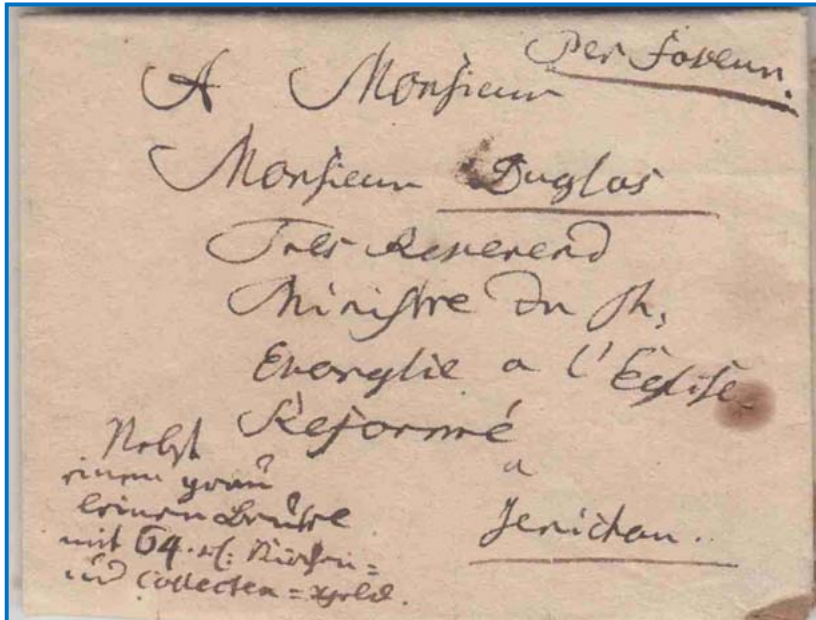 Per faveur.
A Monsieur
Monsieur Duglas
Tres Reverend
Ministre du St.
Evangile a l'Eglise
Reformé
a
Jerichau.
Nebst
einen grau
leinen Beutel
mit 64. rl: Kirchen=
und Collecten=geld.